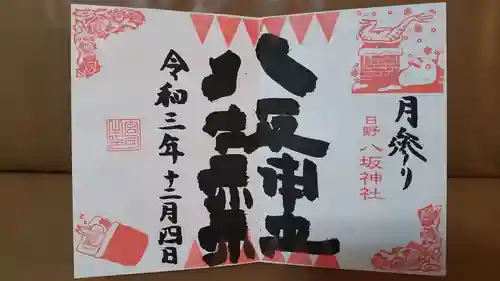 月参り
日野 八坂神社
八坂神社
令和三年十二月四日